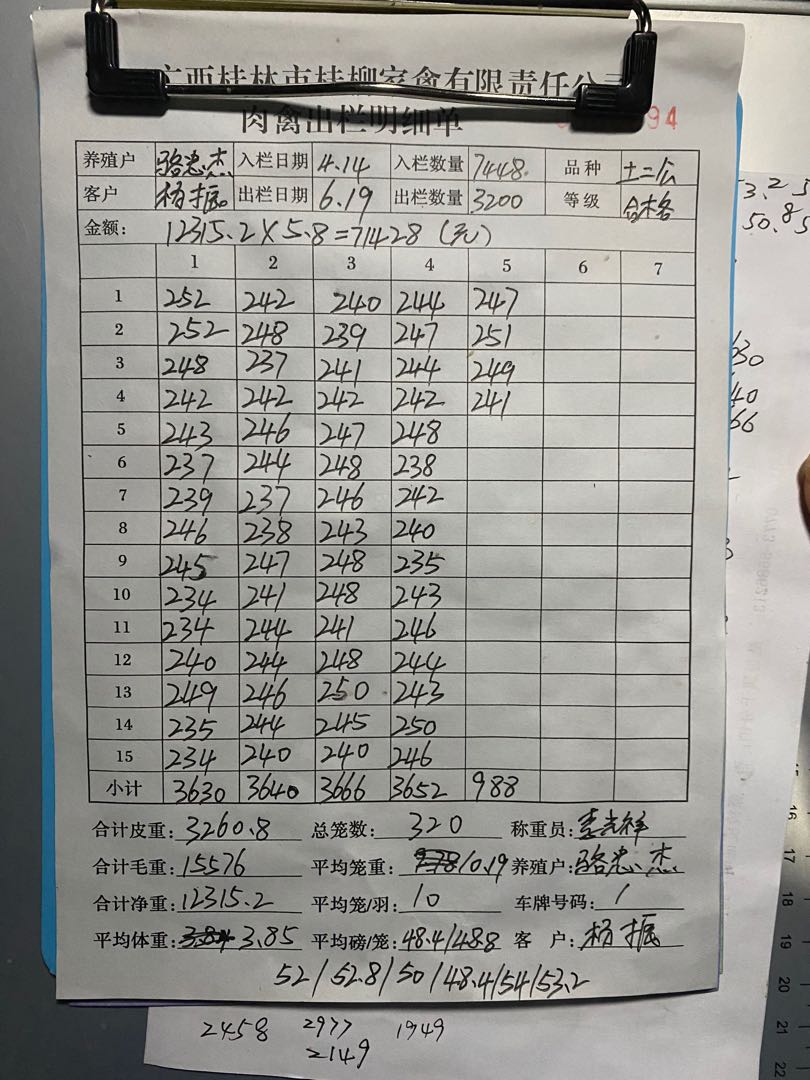 广西桂林市桂柳家禽有限责任公司
肉禽出栏明细单 94
养殖户 骆忠杰 入栏日期 4.14 入栏数量 7448 品种 土二公
客户 杨振 出栏日期 6.19 出栏数量 3200 等级 合格
金额: 12315.2×5.8=71428(元)
1 2 3 4 5 6 7
1 252 242 240 244 247
2 252 248 239 247 251
3 248 237 241 244 249
4 242 242 242 242 241
5 243 246 247 248
6 237 244 248 238
7 239 237 246 242
8 246 238 243 240
9 245 247 248 235
10 234 241 248 243
11 234 244 241 246
12 240 244 248 244
13 249 246 250 243
14 235 244 245 250
15 234 240 240 246
小计 3630 3640 3666 3652 988
合计皮重: 3260.8 总笼数: 320 称重员: 李光祥
合计毛重: 15576 平均笼重: 10.19 养殖户: 骆忠杰
合计净重: 12315.2 平均笼/羽: 10 车牌号码: 1
平均体重: 3.85 平均磅/笼: 48.4/48.8 客 户: 杨振
52/52.8/50/48.4/54/53.2
2458 2977 1949
2149
53.2
50.8
630
40
66
16
17
18
19
20
21
22